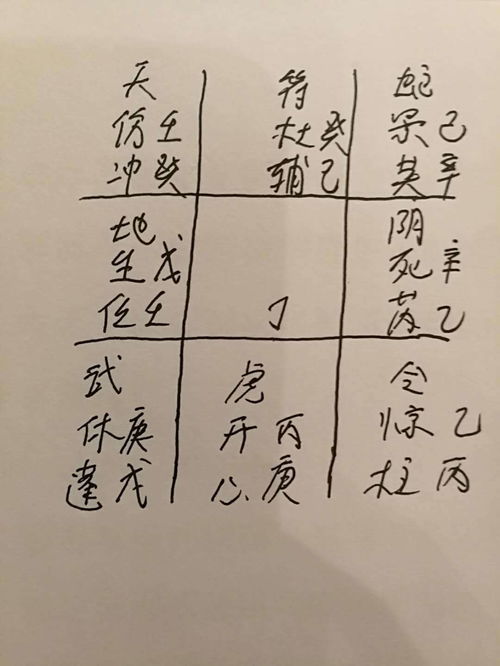 天
伤壬
冲癸
符
杜癸
辅己
蛇
景己
英辛
地
生戊
任壬
丁
阴
死辛
芮乙
武
休庚
蓬戊
虎
开丙
心庚
合
惊乙
柱丙